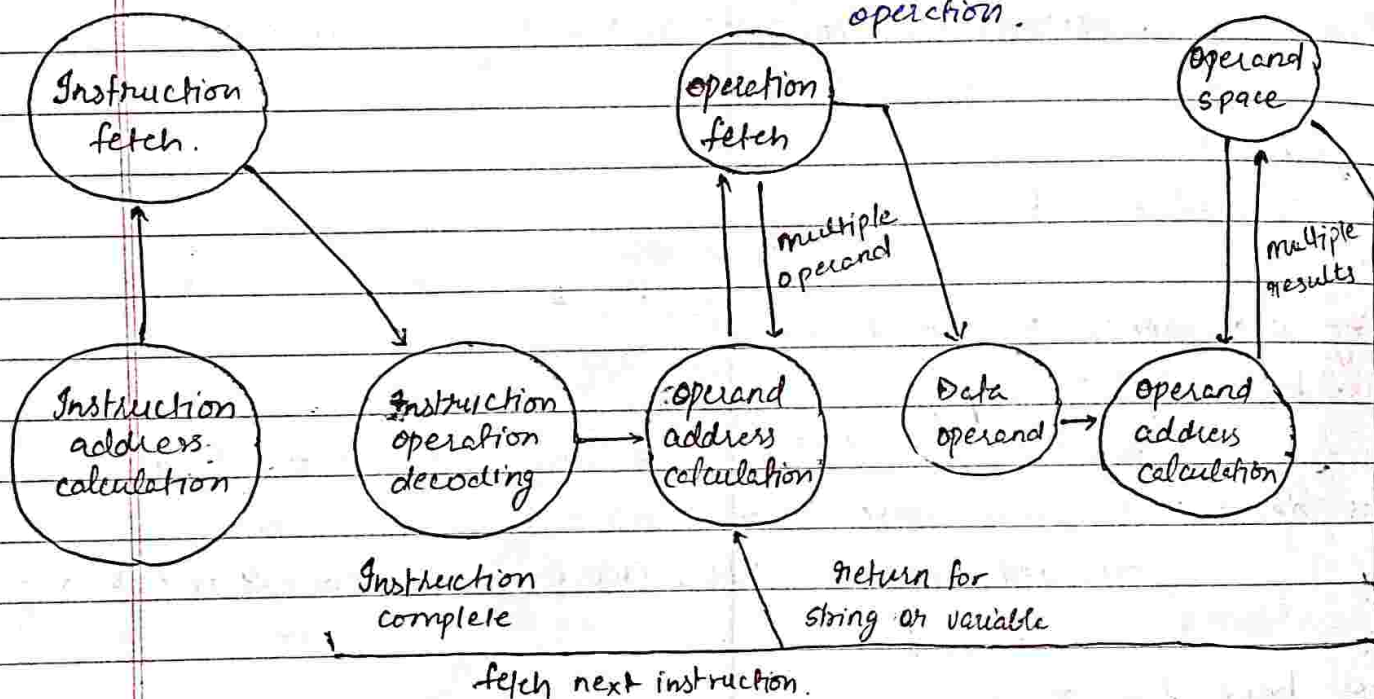 operction.
Instruction
fetch.
operation
fetch
operand
space
multiple
operand
multiple
results
Instruction
address
calculation
Instruction
operation
decoding
operand
address
calculation
Data
operand
operand
address
calculation
Instruction
complete
return for
string or variable
fetch next instruction.